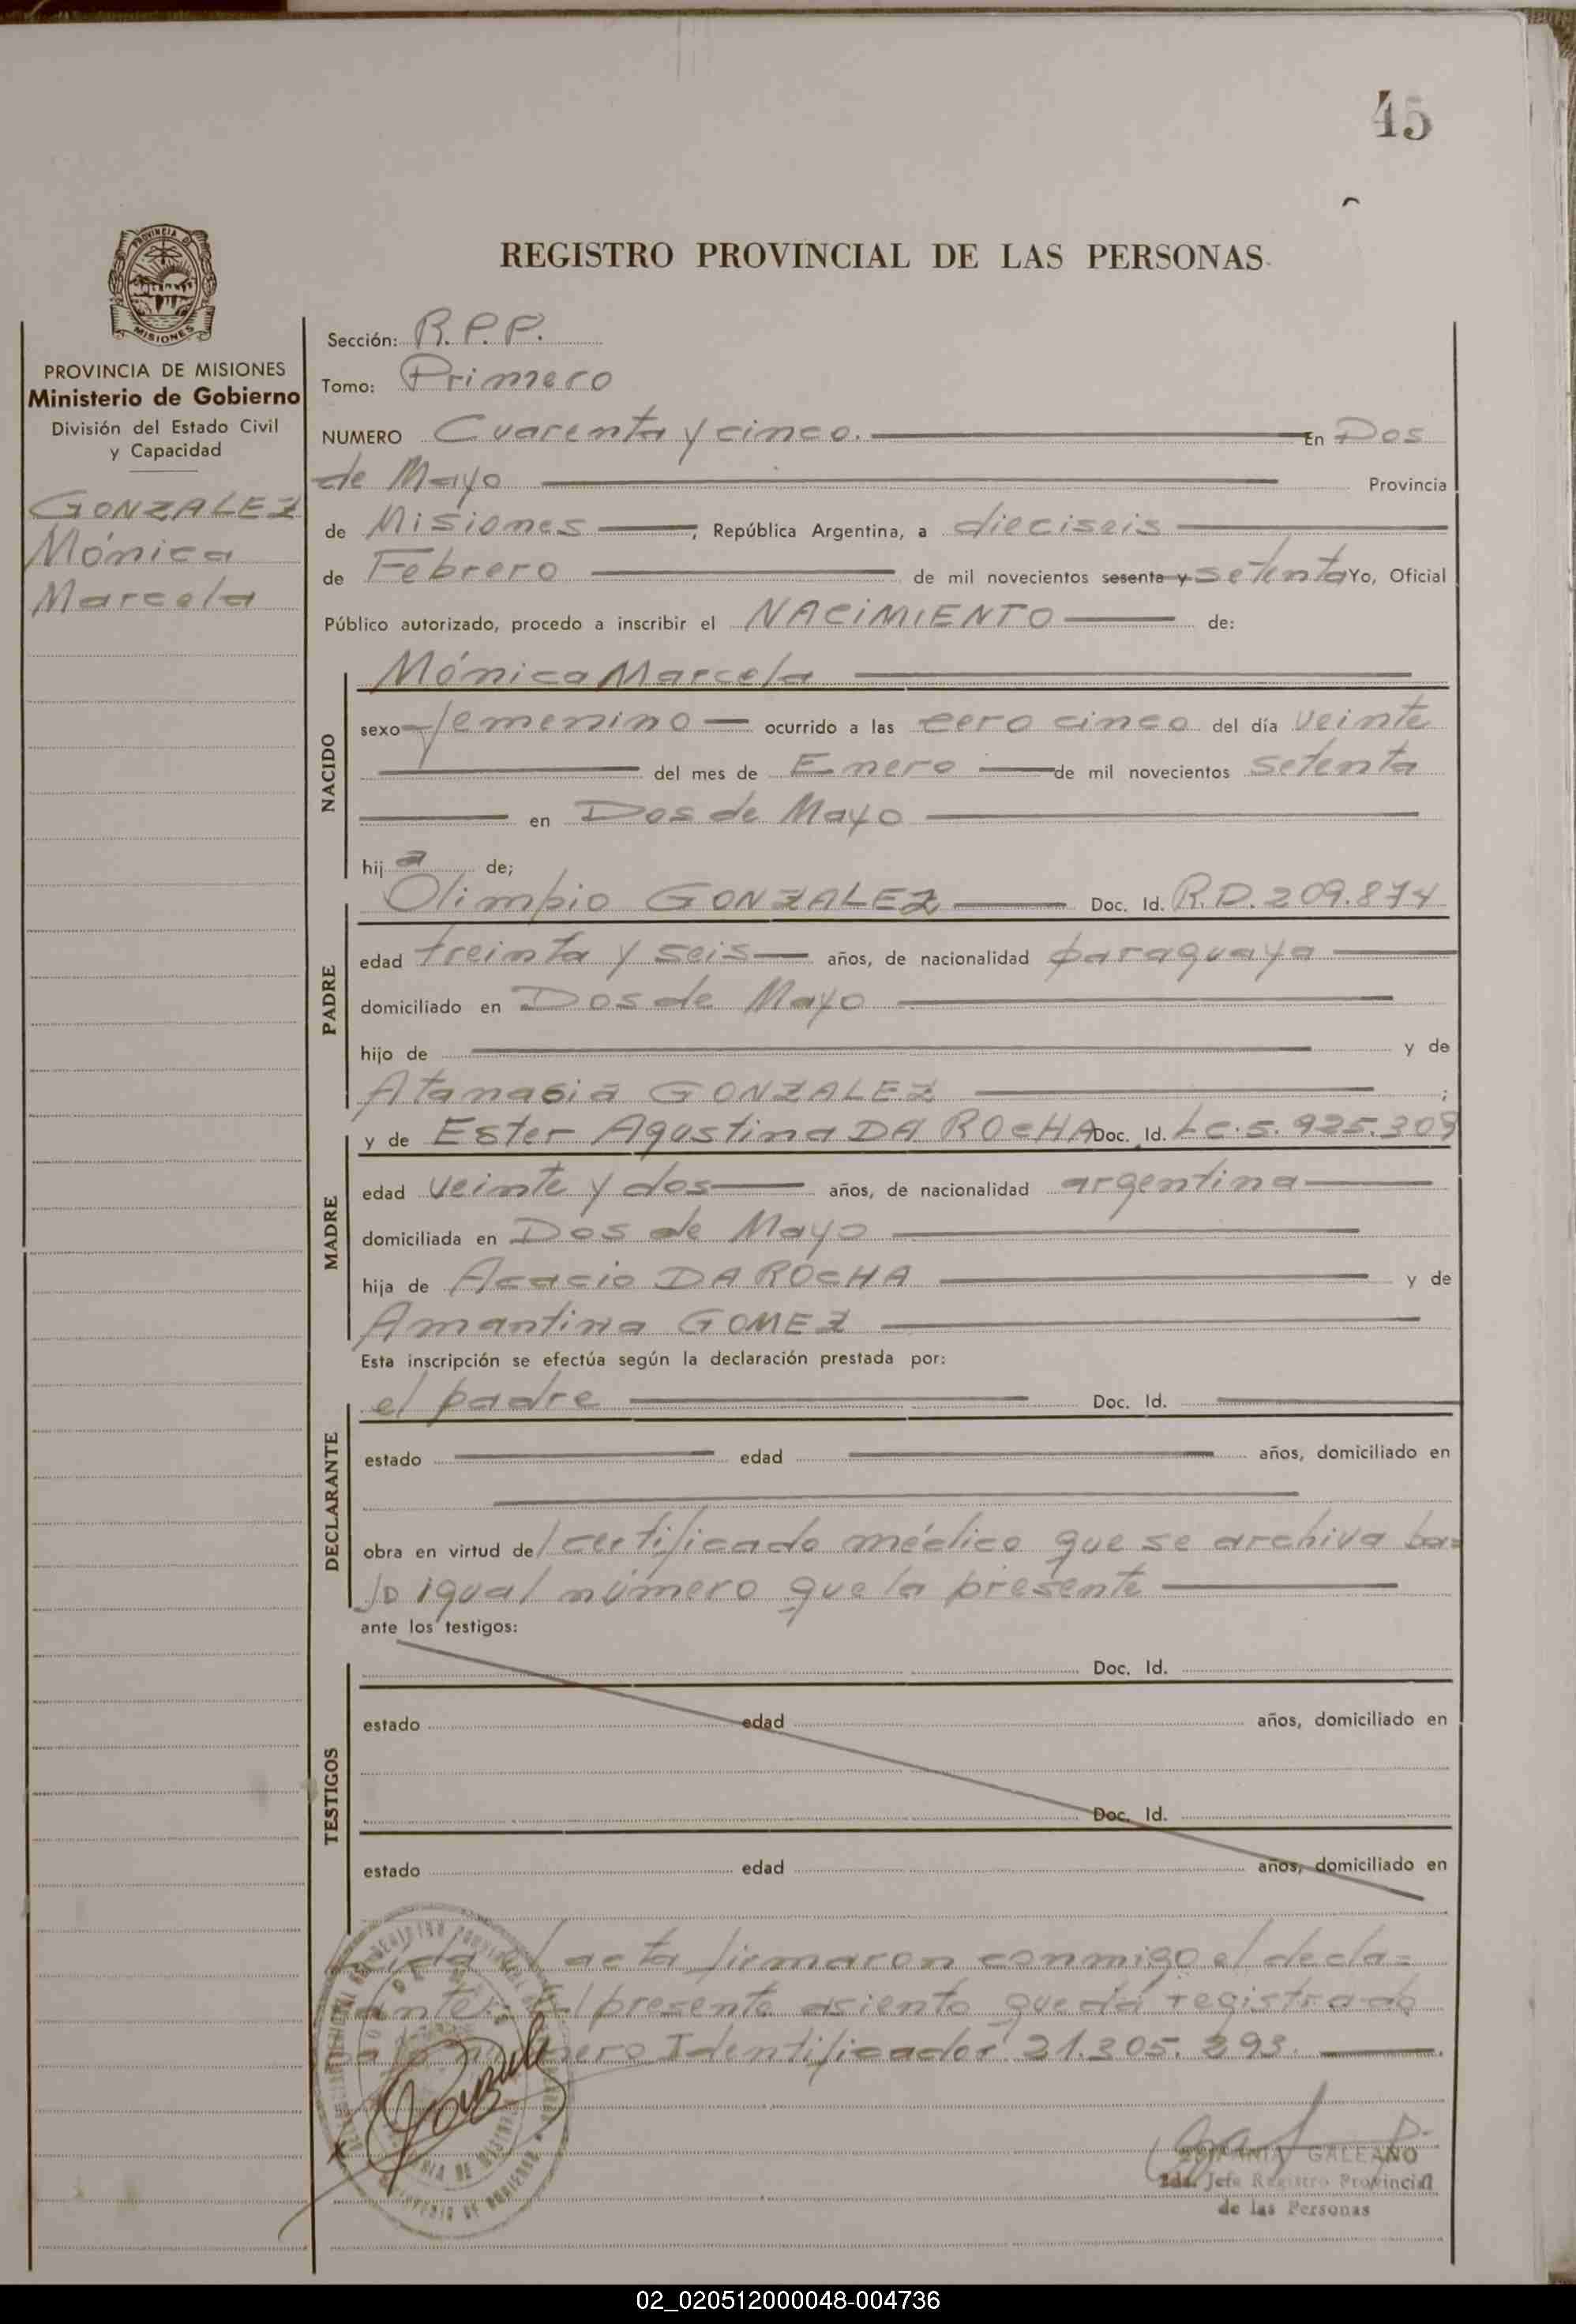 45
REGISTRO PROVINCIAL DE LAS PERSONAS
PROVINCIA DE MISIONES
Ministerio de Gobierno
División del Estado Civil
y Capacidad
GONZALEZ
Mónica
Marcela
Sección: R.P.P.
Tomo: Primero
NUMERO Cuarenta y cinco. En Dos
de Mayo Provincia
de Misiones, República Argentina, a dieciseis
de Febrero de mil novecientos sesenta y setenta Yo, Oficial
Público autorizado, procedo a inscribir el NACIMIENTO de:
NACIDO
Mónica Marcela
sexo femenino ocurrido a las cero cinco del día veinte
del mes de Enero de mil novecientos setenta
en Dos de Mayo
hija de;
PADRE
Olimpio GONZALEZ Doc. Id. R.D. 209.874
edad treinta y seis años, de nacionalidad paraguaya
domiciliado en Dos de Mayo
hijo de y de
Atanasia GONZALEZ ;
MADRE
y de Ester Agustina DA ROCHA Doc. Id. L.C. 5.925.309
edad veinte y dos años, de nacionalidad argentina
domiciliada en Dos de Mayo
hija de Acacio DA ROCHA y de
Amantina GOMEZ
Esta inscripción se efectúa según la declaración prestada por:
DECLARANTE
el padre Doc. Id.
estado edad años, domiciliado en
obra en virtud del certificado médico que se archiva ba=
jo igual número que la presente
ante los testigos:
TESTIGOS
Doc. Id.
estado edad años, domiciliado en
Doc. Id.
estado edad años, domiciliado en
acta firmaron conmigo el decla=
presente asiento queda registrado
Identificador 21.305.293.
GALEANO
Jefe Registro Provincial
de las Personas
02_020512000048-004736